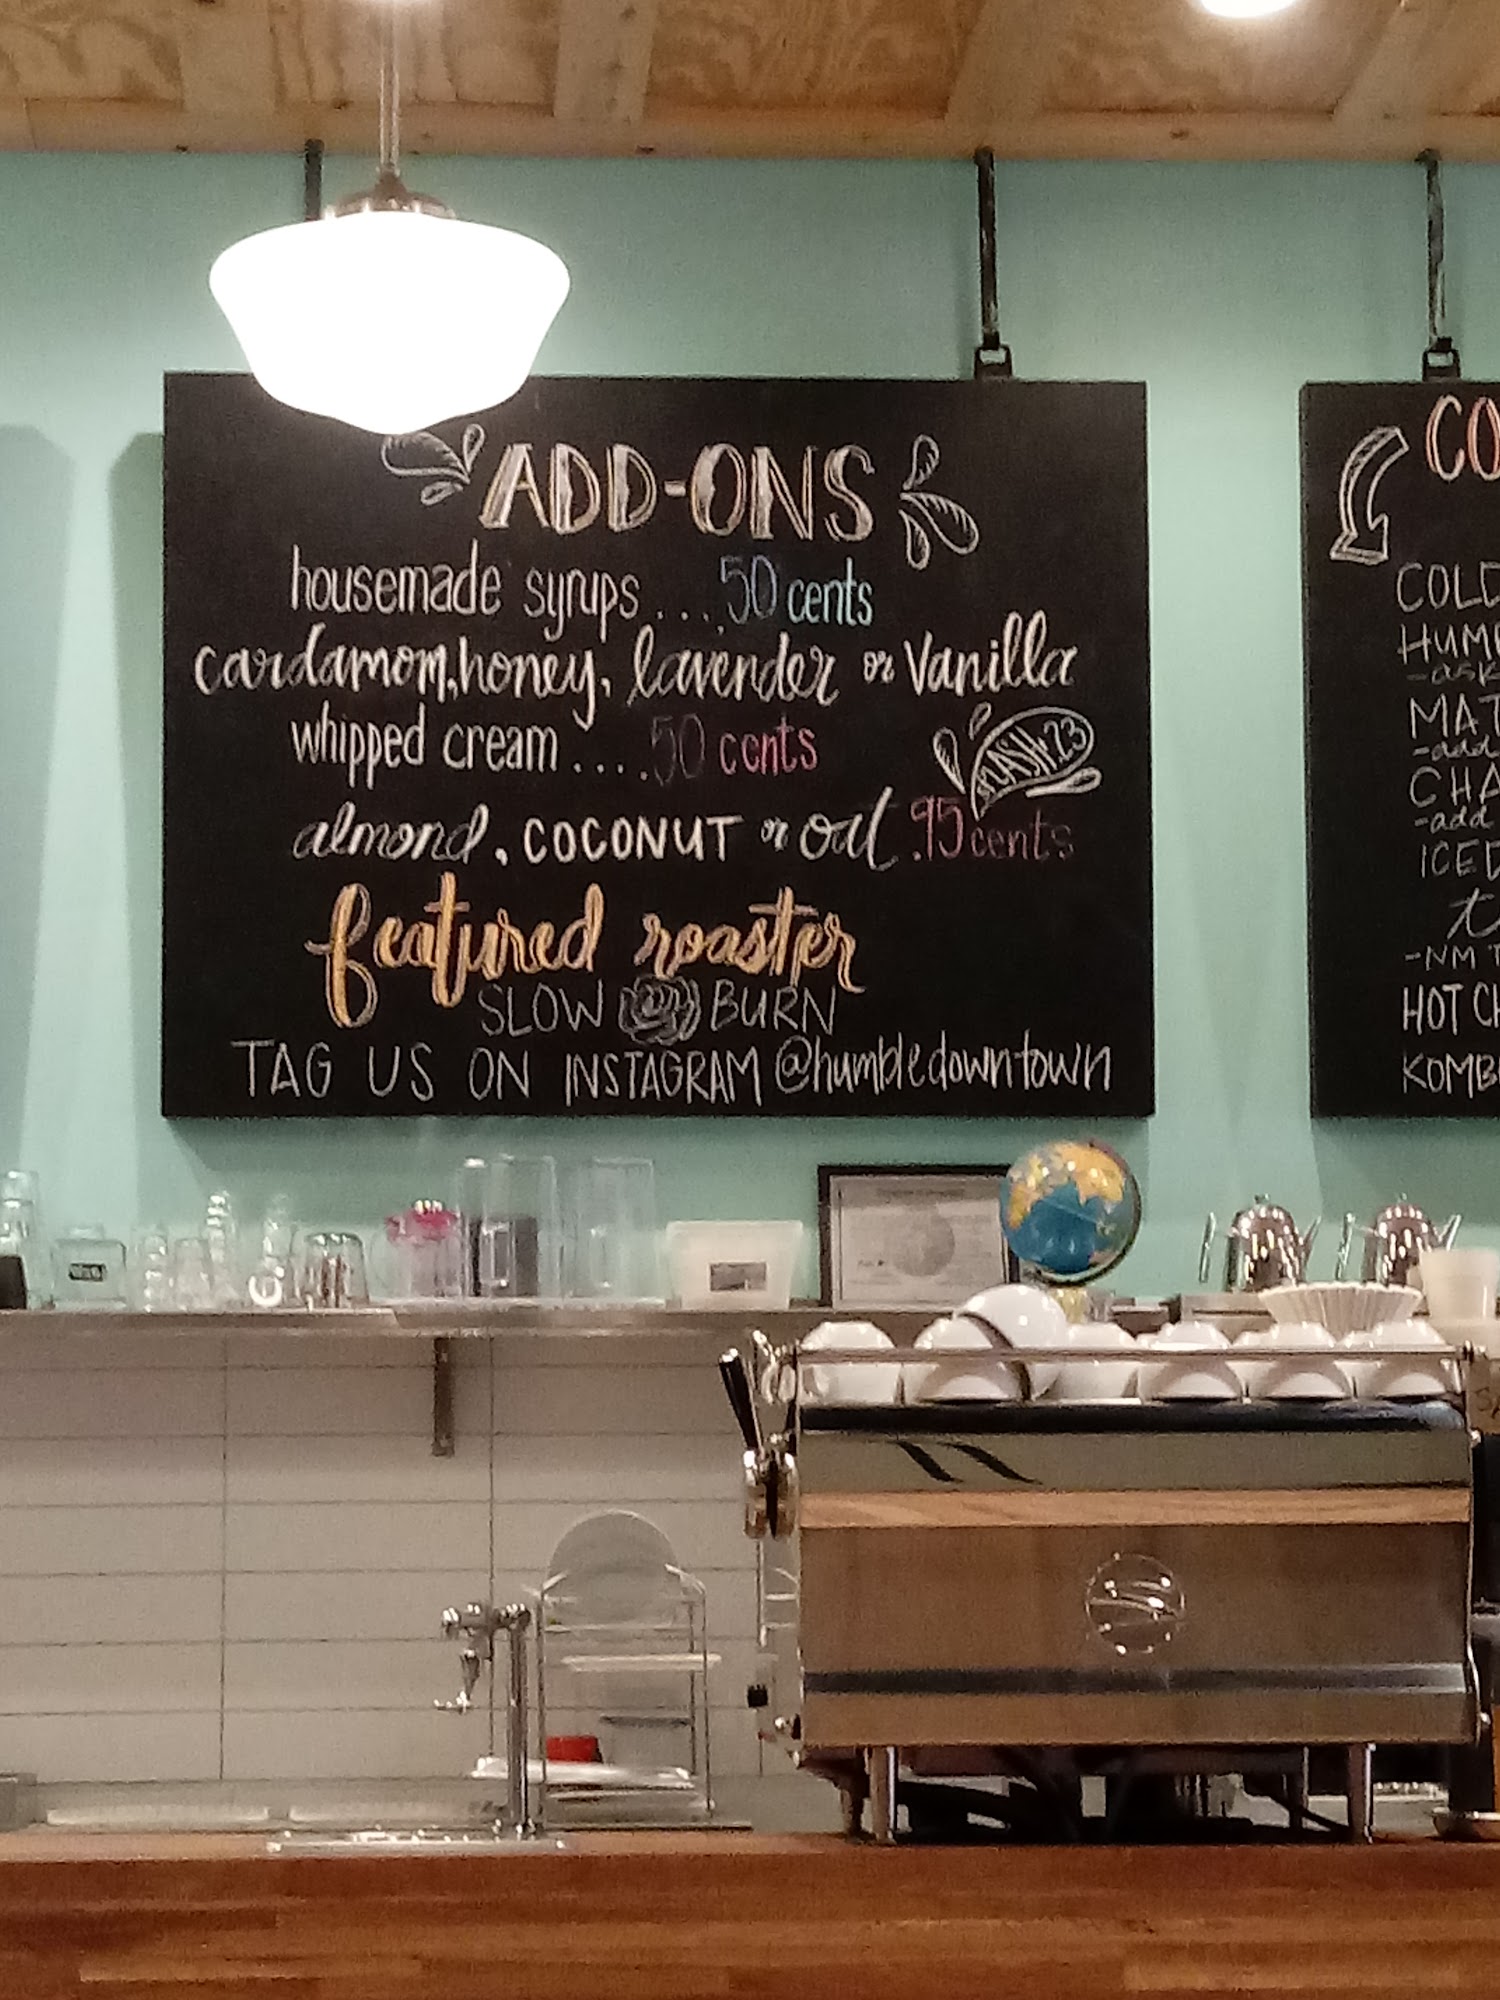 ADD-ONS
housemade syrups....50 cents
cardamom, honey, lavender or vanilla
whipped cream....50 cents
SPLASH .23
almond, COCONUT or oat .95 cents
featured roaster
SLOW BURN
TAG US ON INSTAGRAM @humbledowntown
CO
COLD
HUM
-ask
MAT
-add
CHA
-add
ICED
t
-NM T
HOT CH
KOMB